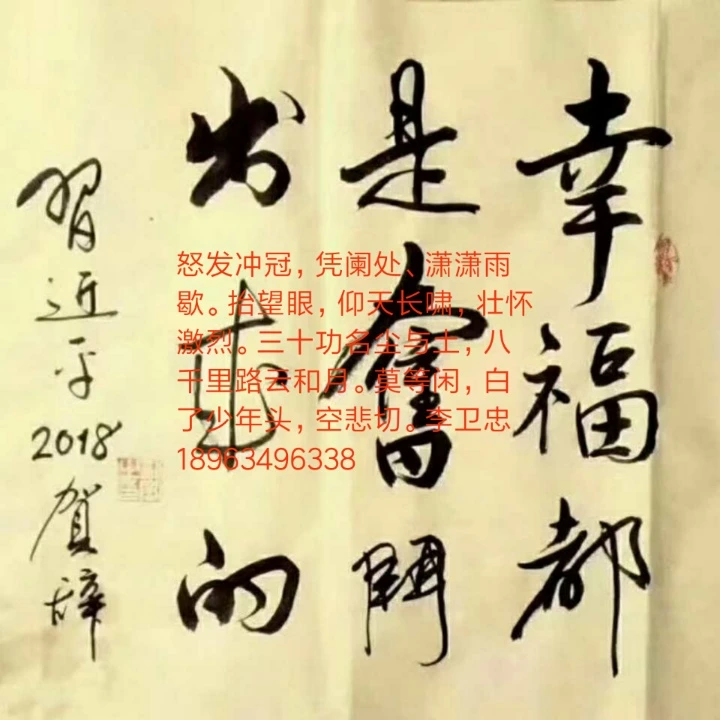 幸福都
是奮鬥
出来的
習近平2018賀辭
怒发冲冠，凭阑处、潇潇雨
歇。抬望眼，仰天长啸，壮怀
激烈。三十功名尘与土，八
千里路云和月。莫等闲，白
了少年头，空悲切。李卫忠
18963496338